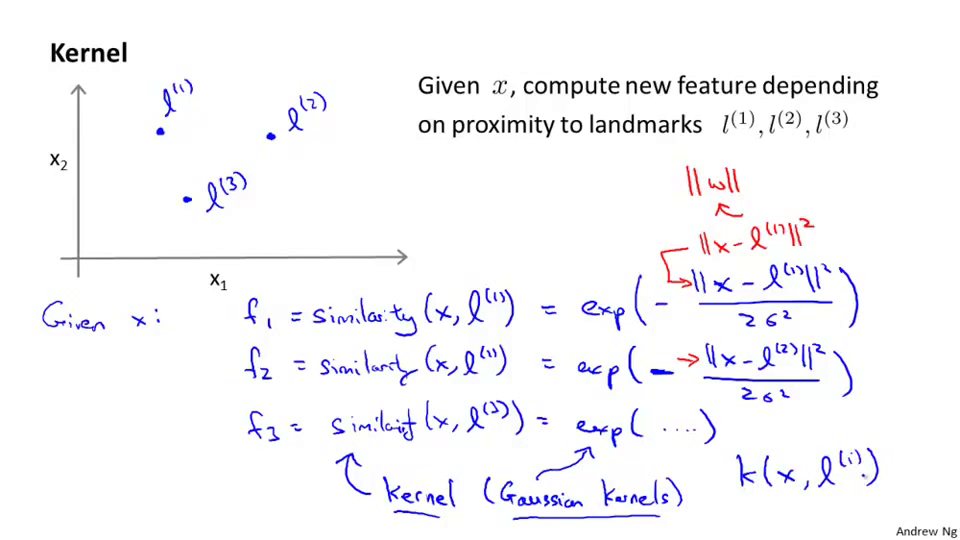 Kernel
l^(1)
l^(2)
l^(3)
x₂
x₁
Given x, compute new feature depending
on proximity to landmarks l^(1), l^(2), l^(3)
||w||
||x - l^(1)||²
Given x: f₁ = similarity(x, l^(1)) = exp(- ||x - l^(1)||² / 2σ²)
f₂ = similarity(x, l^(1)) = exp(- ||x - l^(2)||² / 2σ²)
f₃ = similarity(x, l^(3)) = exp( ....)
kernel (Gaussian kernels) k(x, l^(i))
Andrew Ng